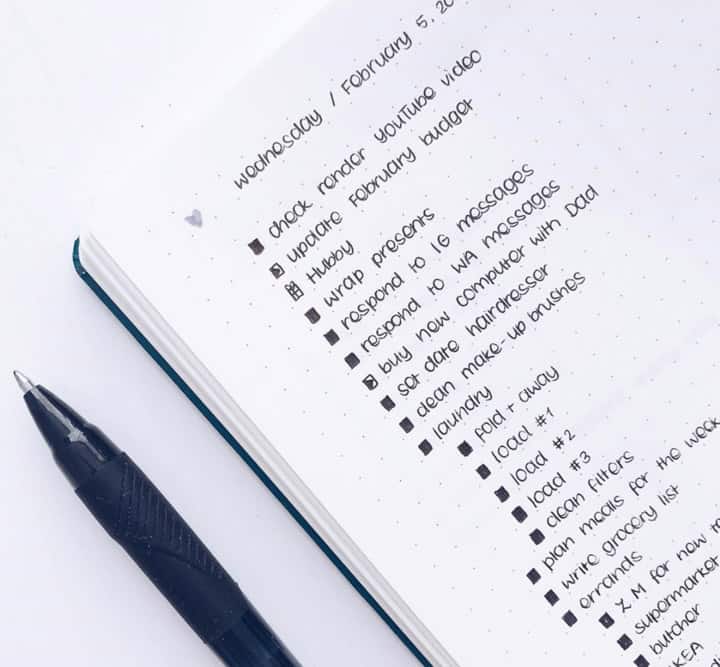 wednesday / February 5, 20
check render youtube video
update February budget
Hubby
wrap presents
respond to IG messages
respond to WA messages
buy new computer with Dad
set date hairdresser
clean make-up brushes
laundry
fold + away
load #1
load #2
load #3
clean filters
plan meals for the week
write grocery list
errands
M for new
supermarket
butcher
IKEA